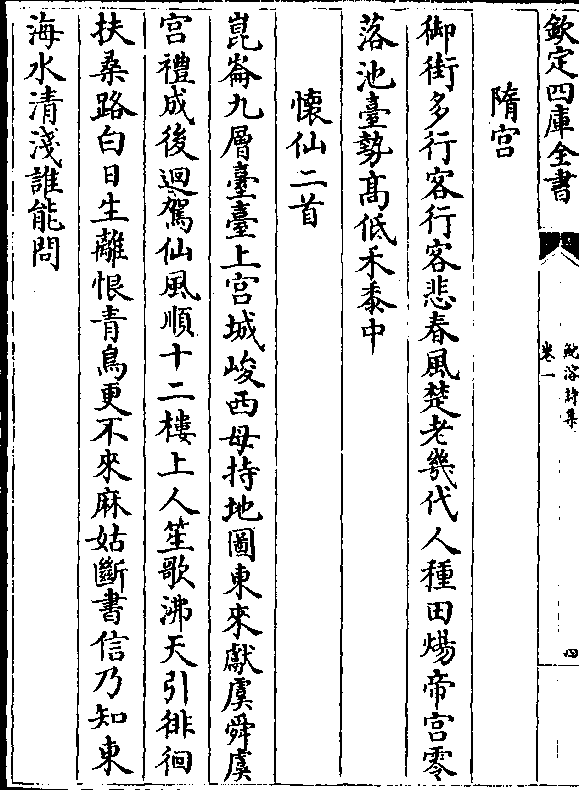 欽定四庫全書
鮑溶詩集
卷一
四
隋宫
御街多行客行客悲春風楚老幾代人種田煬帝宫零
落池臺勢髙低禾黍中
懷仙二首
崑崙九層臺臺上宫城峻西母持地圖東來獻虞舜虞
宫禮成後迴駕仙風順十二樓上人笙歌沸天引徘徊
扶桑路白日生離恨青鳥更不來麻姑斷書信乃知東
海水清淺誰能問